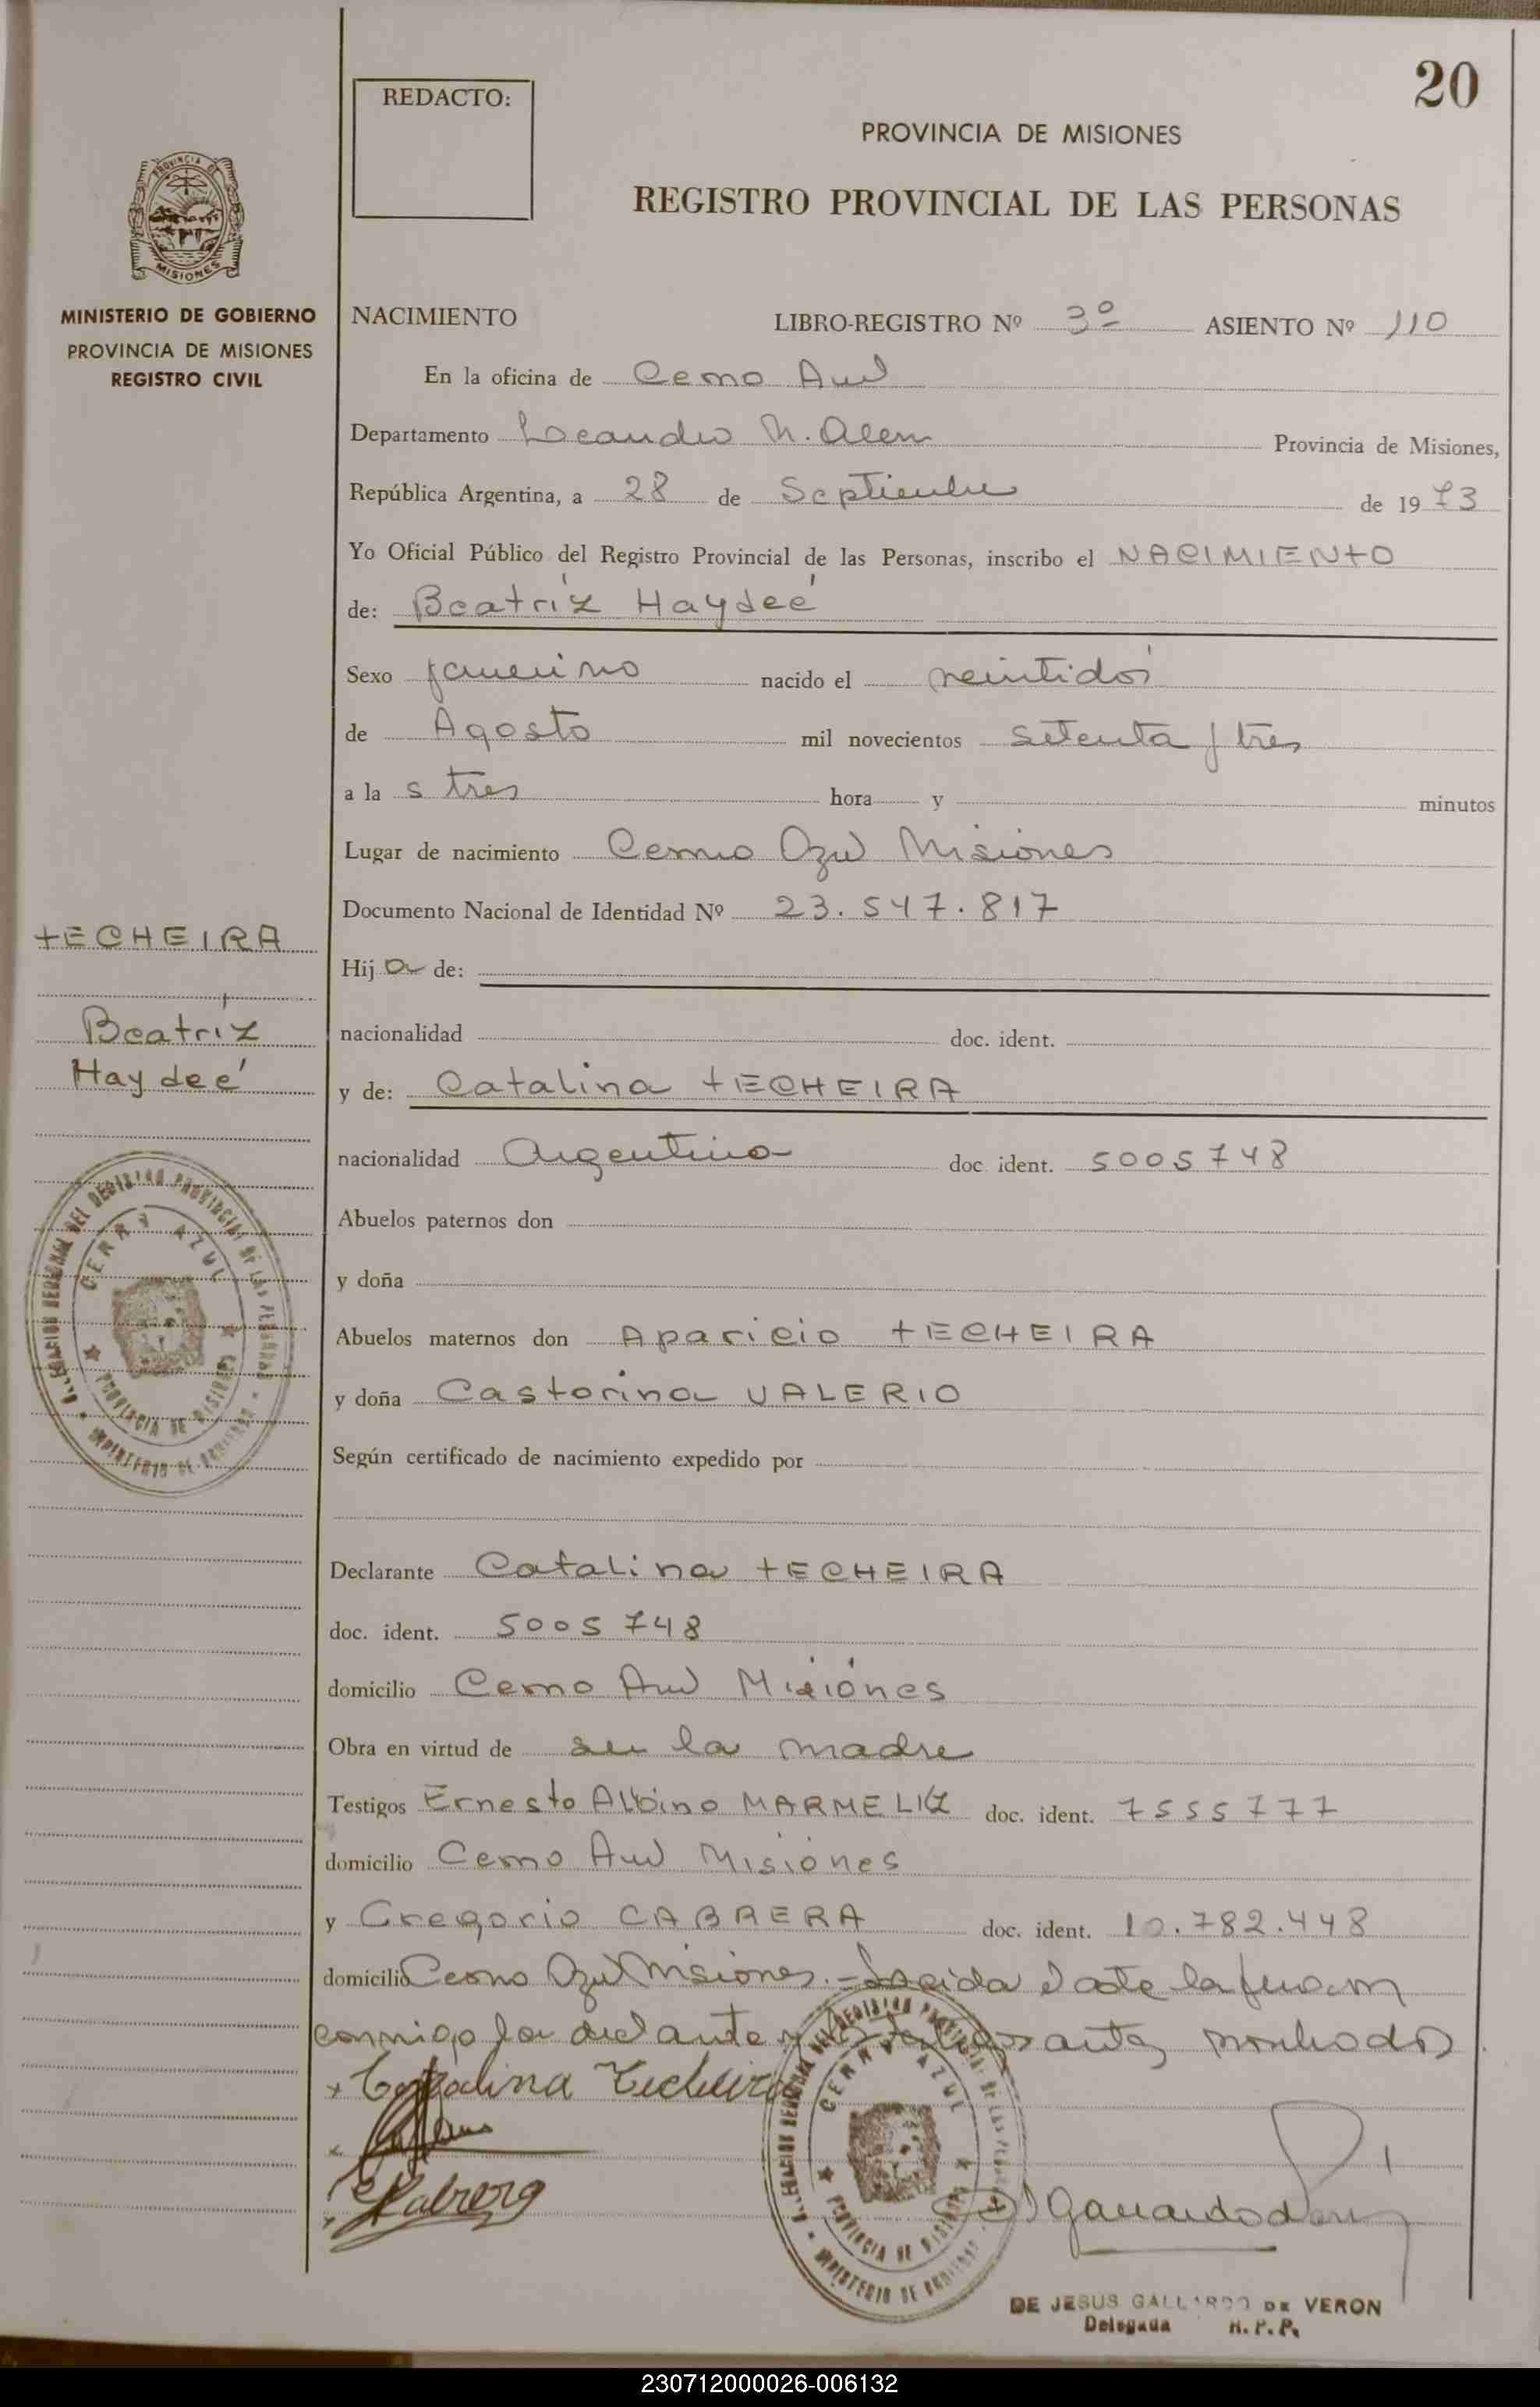 20
REDACTO:
PROVINCIA DE MISIONES
REGISTRO PROVINCIAL DE LAS PERSONAS
PROVINCIA DE
MISIONES
MINISTERIO DE GOBIERNO
PROVINCIA DE MISIONES
REGISTRO CIVIL
NACIMIENTO LIBRO-REGISTRO Nº 3º ASIENTO Nº 110
En la oficina de Cerro Azul
Departamento Leandro N. Alem Provincia de Misiones,
República Argentina, a 28 de Septiembre de 1973
Yo Oficial Público del Registro Provincial de las Personas, inscribo el NACIMIENTO
de: Beatríz Haydeé
Sexo femenino nacido el veintidós
de Agosto mil novecientos setenta y tres
a la s tres hora y minutos
Lugar de nacimiento Cerro Azul Misiones
Documento Nacional de Identidad Nº 23.547.817
TECHEIRA
Beatríz
Haydeé
Hij a de:
nacionalidad doc. ident.
y de: Catalina TECHEIRA
nacionalidad Argentina doc. ident. 5005748
Abuelos paternos don
y doña
Abuelos maternos don Aparicio TECHEIRA
y doña Castorina VALERIO
Según certificado de nacimiento expedido por
Declarante Catalina TECHEIRA
doc. ident. 5005748
domicilio Cerro Azul Misiones
Obra en virtud de ser la madre
Testigos Ernesto Albino MARMELIZ doc. ident. 7555777
domicilio Cerro Azul Misiones
y Gregorio CABRERA doc. ident. 10.782.448
domicilio Cerro Azul Misiones.=Leida el acta la firman
conmigo la declante y los testigos antes nombrados
Catalina Techeira
Cabrera
CERRO AZUL
PROVINCIA DE MISIONES
MINISTERIO DE GOBIERNO
CERRO AZUL
PROVINCIA DE MISIONES
MINISTERIO DE GOBIERNO
DE JESUS GALLARDO DE VERON
Delegada R.P.P.
230712000026-006132